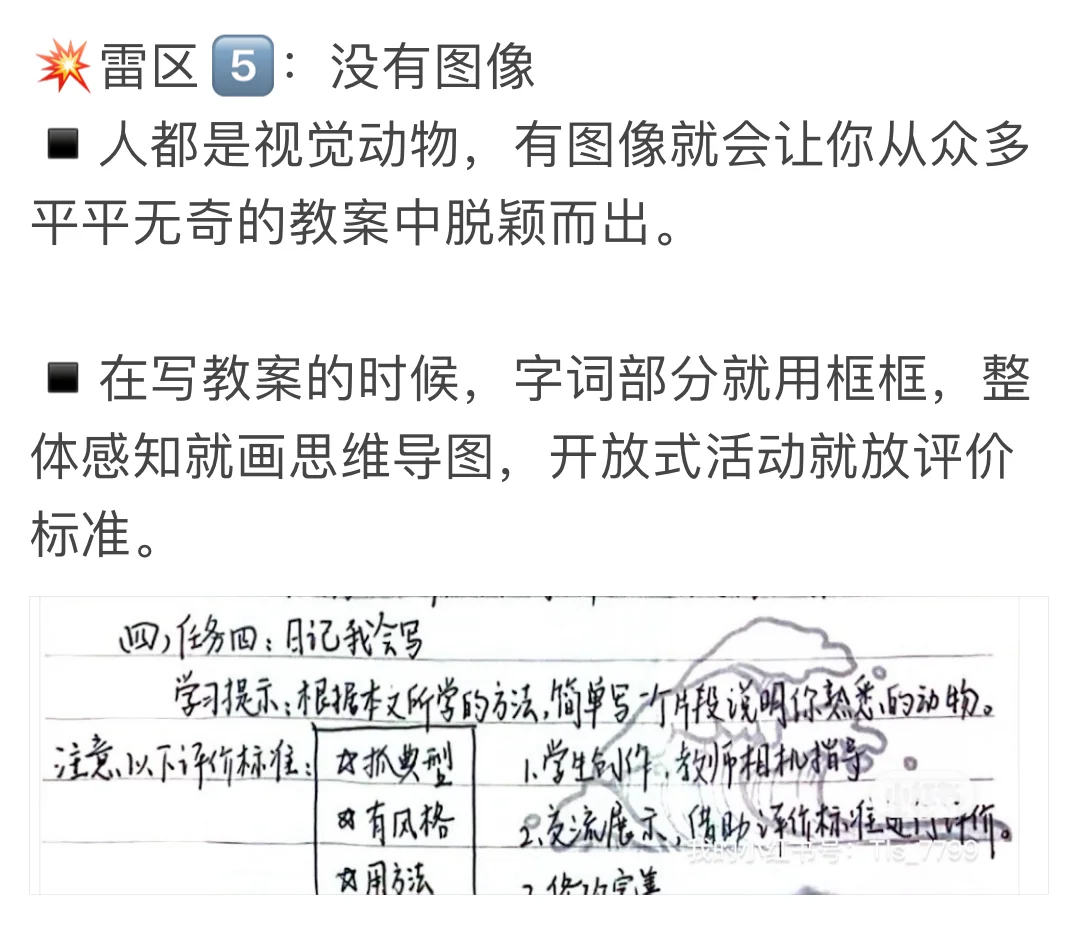 💥雷区5️⃣：没有图像
▪️人都是视觉动物，有图像就会让你从众多
平平无奇的教案中脱颖而出。
▪️在写教案的时候，字词部分就用框框，整
体感知就画思维导图，开放式活动就放评价
标准。
四、任务四：日记我会写
学习提示：根据本文所学的方法，简单写一个片段说明你熟悉的动物。
注意以下评价标准：
☆抓典型
☆有风格
☆用方法
1.学生创作，教师相机指导
2.交流展示，借助评价标准进行评价。
小红书
我的小红书号：Tls_7799